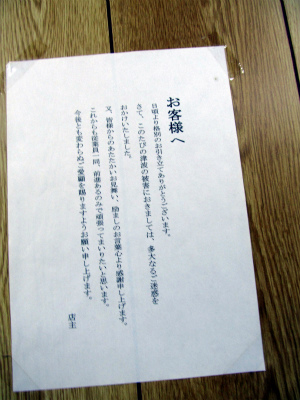 お客様へ
日頃より格別のお引き立てありがとうございます。
さて、このたびの津波の被害におきましては、多大なるご迷惑を
おかけいたしました。
又、皆様からのあたたかいお見舞い、励ましのお言葉心より感謝申し上げます。
これからも従業員一同、前進あるのみで頑張ってまいりたいと思います。
今後とも変わらぬご愛顧を賜りますようお願い申し上げます。
店主